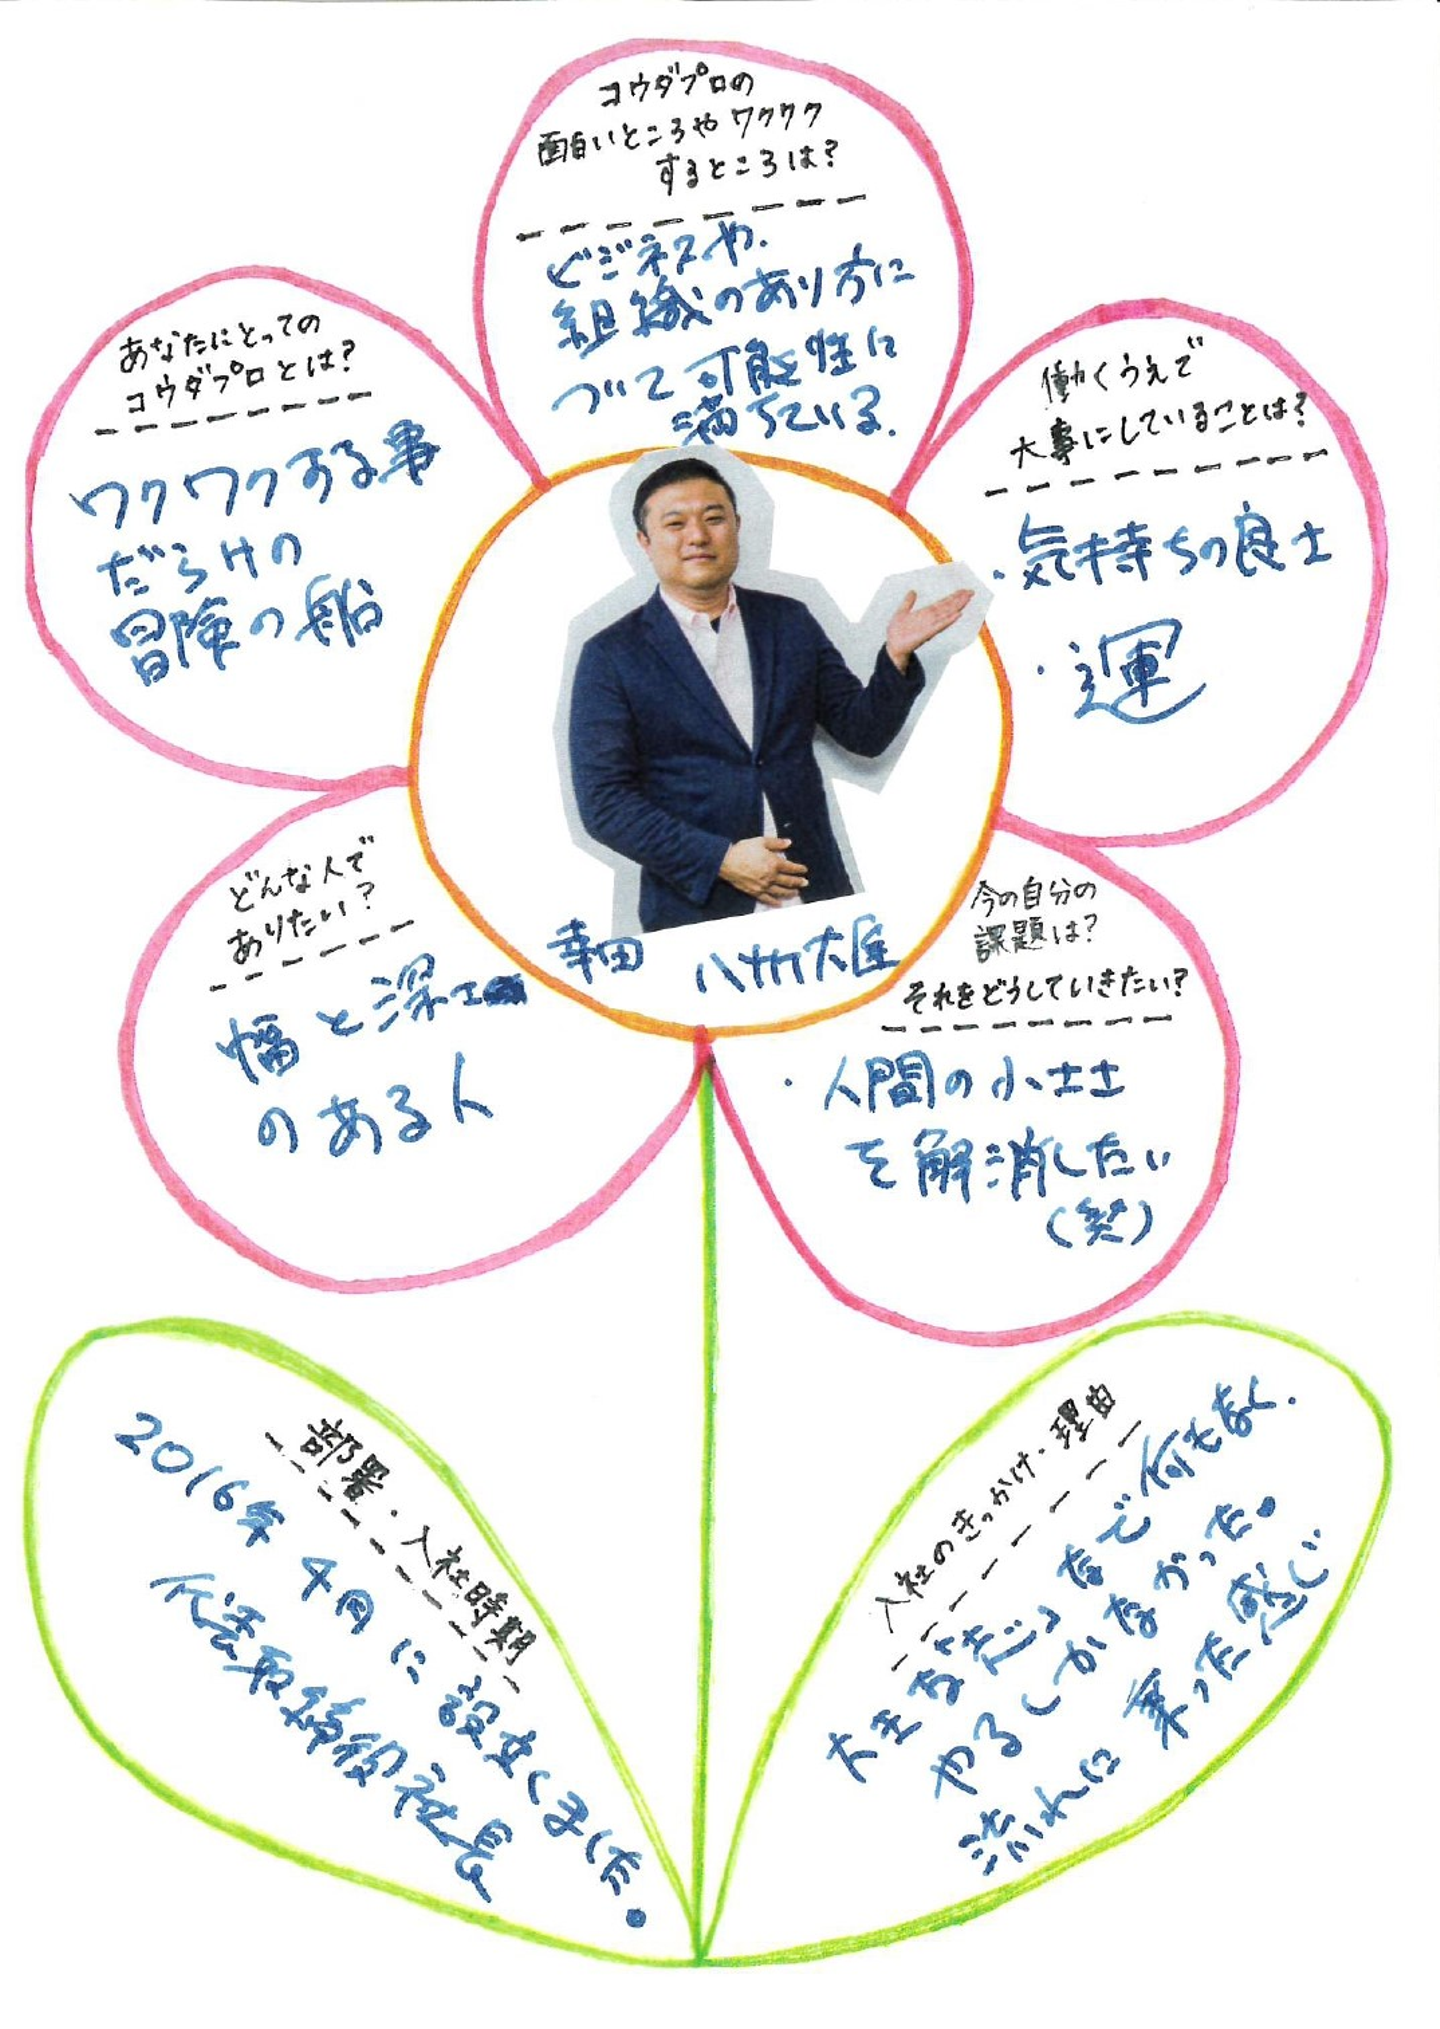 コウダプロの
面白いところやワクワク
するところは?
ビジネスや、
組織のあり方に
ついて可能性に
満ちている。
あなたにとっての
コウダプロとは?
ワクワクする事
だらけの
冒険の船
働くうえで
大事にしていることは?
・気持ちの良さ
・運
どんな人で
ありたい?
幅と深さ
のある人
幸田 八州雄
今の自分の
課題は?
それをどうしていきたい?
・人間の小ささ
を解消したい
(笑)
部署・入社時期
2016年4月に設立しました。
代表取締役社長
入社のきっかけ・理由
まで何もなく、
やるしかなかった。
流れに乗った感じ